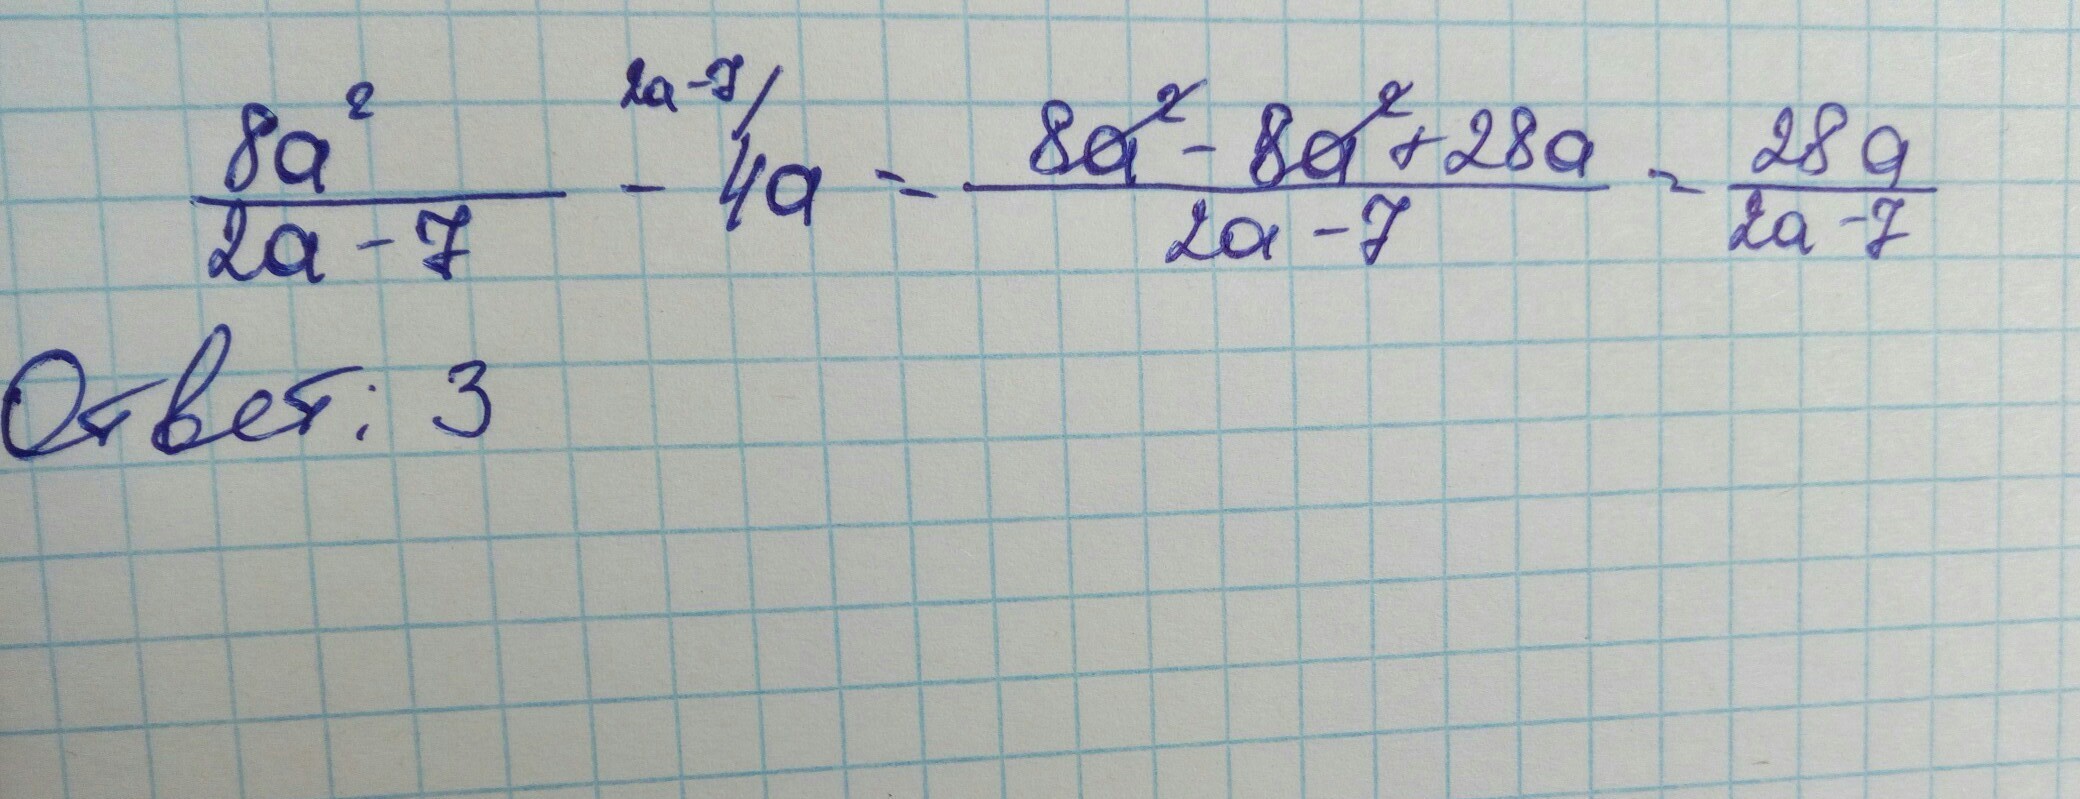 8a² / (2a - 7) - 2a-7/ 4a = (8a² - 8a² + 28a) / (2a - 7) = 28a / (2a - 7)
Ответ: 3